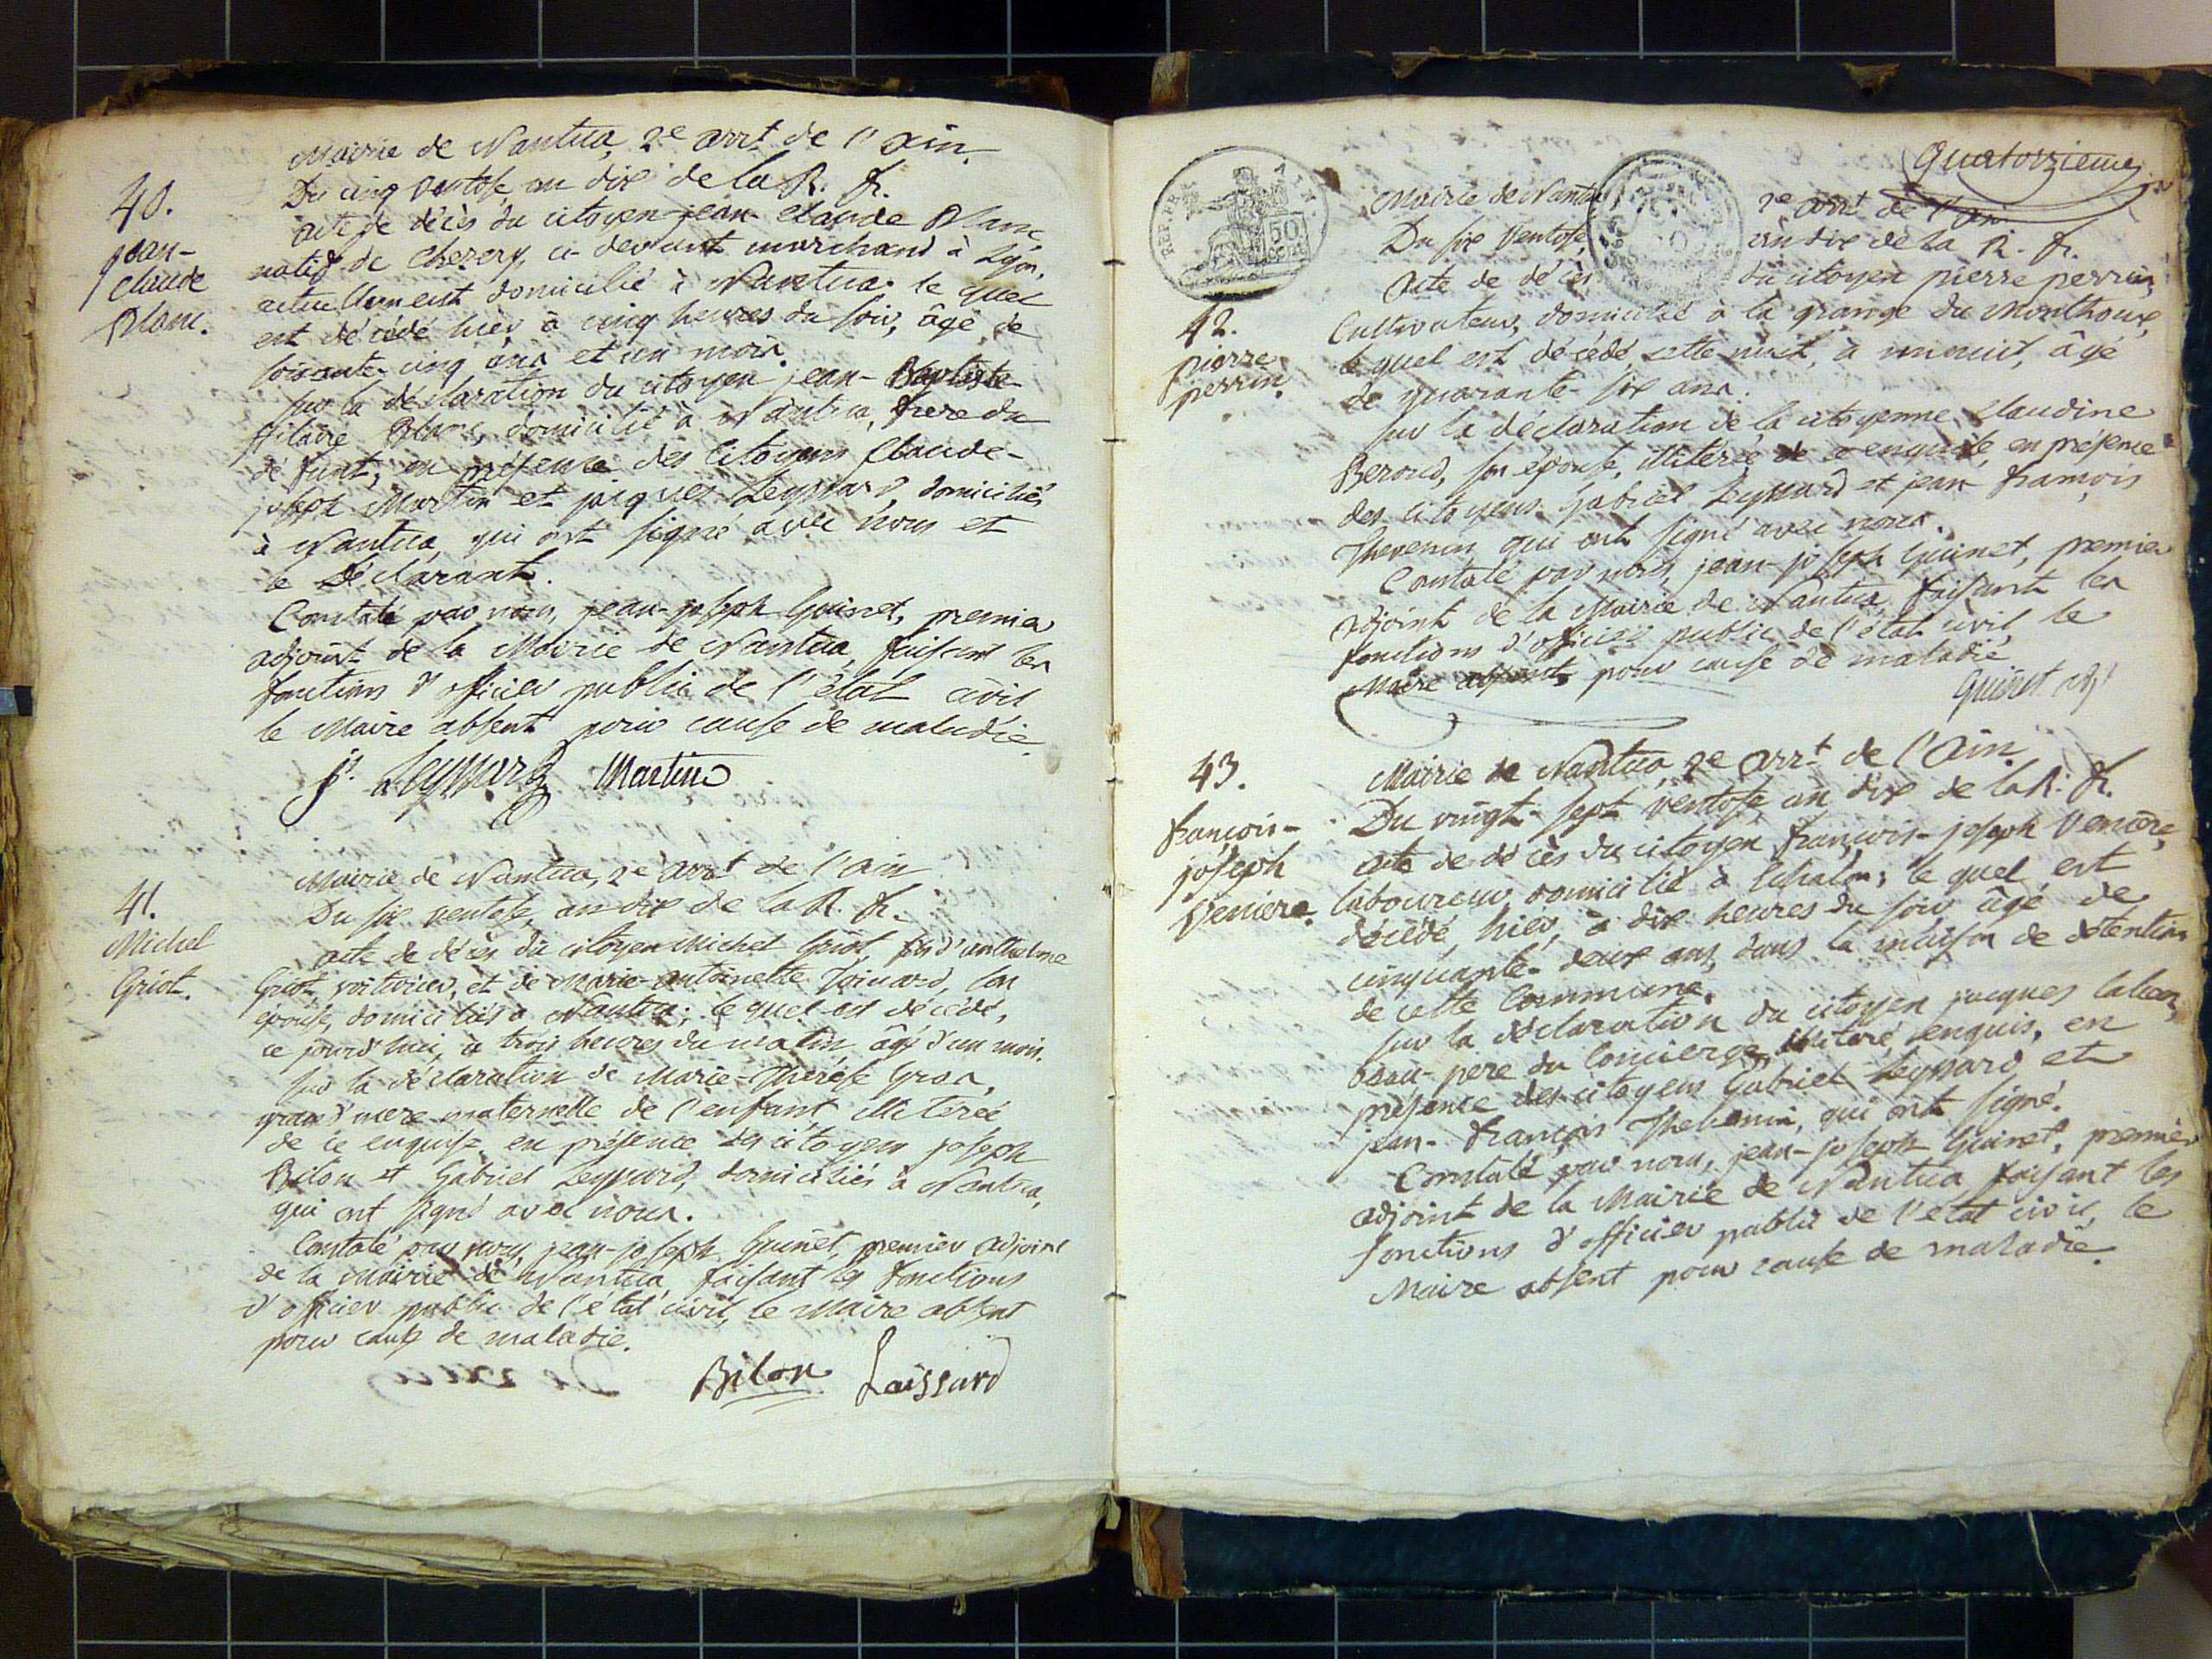 Mairie de Nantua, 2e arrt de l'ain.
40.
Du cinq ventose, an dix de la R. fr.
jean-
claude
Blanc.
acte de décès du citoyen jean-claude Blanc
natif de Chezery, ci-devant marchand à Lyon,
actuellement domicilié à Nantua. le quel
est décédé hier, à cinq heures du soir, âgé de
soixante-cinq ans et un mois.
sur la déclaration du citoyen jean-Baptiste-
hilaire Blanc, domicilié à Nantua, frere du
défunt, en présence des Citoyens Claude-
joseph Martin et jacques Leyssard, domiciliés
à Nantua, qui ont signé avec nous et
le Déclarant.
Constaté par nous, jean-joseph Guinet, premier
adjoint de la Mairie de Nantua, faisant les
fonctions d'officier public de l'état civil
le Maire absent pour cause de maladie.
js. Leyssard Martin
Mairie de Nantua, 2e arrt de l'ain
41.
Michel
Griot.
Du six ventose, an dix de la R. fr.
acte de décès du citoyen Michel Griot, fils d'anthelme
Griot voiturier, et de Marie-antoinette, son
épouse, domiciliés à Nantua; le quel est décédé,
ce jourd'hui, à trois heures du matin âgé d'un mois.
sur la déclaration de Marie-Therése Gros,
grand'mere maternelle de l'enfant, illitérée
de ce enquise, en présence des citoyens joseph
Bilon et Gabriel Leyssard, domiciliés à Nantua,
qui ont signé avec nous.
Constaté par nous, jean-joseph Guinet, premier adjoint
de la Mairie de Nantua, faisant les fonctions
d'officier public de l'état civil, le Maire absent
pour cause de maladie.
Bilon Laissard
Quatorzieme
REP. FR.
50
Mairie de Nantua 2e arrt de l'ain
Du six Ventose, an dix de la R. fr.
Acte de décès du citoyen pierre perrin,
42.
pierre
perrin.
Cultivateur, domicilié à la grange du Monthoux,
le quel est décédé, cette nuit, à minuit, âgé
de quarante-six ans.
sur la déclaration de la citoyenne Claudine
Beroud, son épouse, illitérée de ce enquise, en présence
des citoyens Gabriel Leyssard et jean françois
Thevenin, qui ont signé avec nous.
Constaté par nous, jean-joseph Guinet, premier
adjoint de la Mairie de Nantua, faisant les
fonctions d'officier public de l'état civil, le
Maire absent, pour cause de maladie,
Guinet adjt
43.
françois-
joseph
Veniere.
Mairie de Nantua, 2e arrt de l'ain.
Du vingt-sept ventose, an dix de la R. fr.
acte de décès du citoyen françois-joseph Veniere,
laboureur, domicilié à Echalon; le quel est
décédé, hier, à dix heures du soir, âgé de
cinquante-deux ans, dans la maison de détention
de cette Commune.
sur la déclaration du citoyen jacques
beau-pere du Concierge, illiteré, enquis, en
présence des citoyens Gabriel Leyssard et
jean-françois Thevenin, qui ont signé.
Constaté par nous, jean-joseph Guinet, premier
adjoint de la Mairie de Nantua faisant les
fonctions d'officier public de l'état civil, le
Maire absent pour cause de maladie.